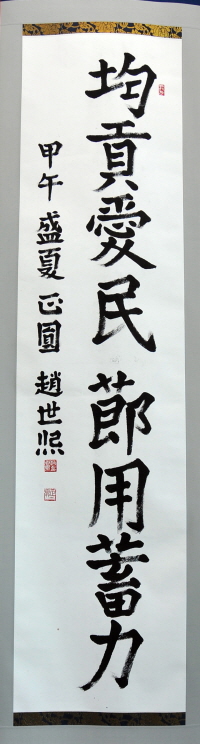 均貢愛民節用蓄力
甲午盛夏正圓趙世熙